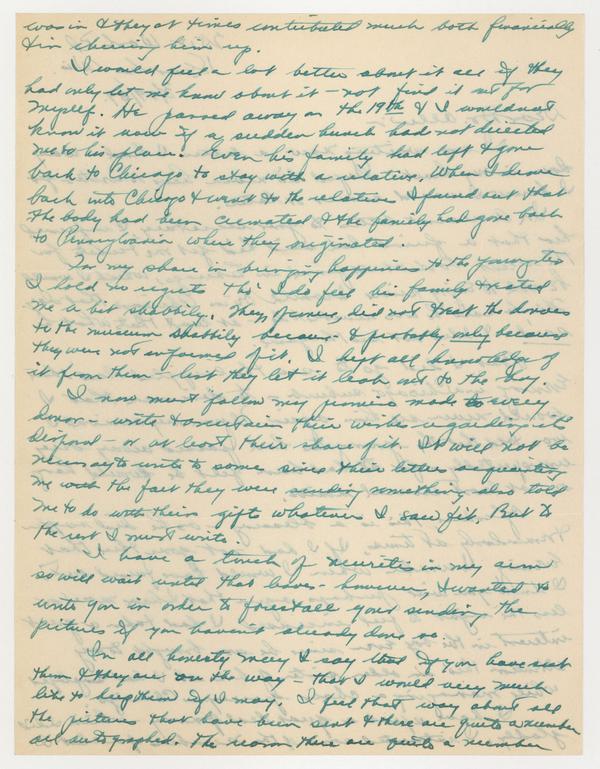 was in & they at times contributed much both financially
& in cheering him up.
I would feel a lot better about it all if they
had only let me know about it - not find it out for
myself. He passed away on the 19th & I would not
know it now if a sudden hunch had not directed
me to his place. Even his family had left & gone
back to Chicago to stay with a relative. When I drove
back into Chicago & went to the relative I found out that
the body had been cremated & the family had gone back
to Pennsylvania where they originated.
For my share in bringing happiness to the youngster
I hold no regrets tho' I do feel his family treated
me a bit shabbily. They, of course, did not treat the donors
to the museum shabbily because & probably only because
they were not informed of it. I kept all knowledge of
it from them - but they let it leak out to the boy.
I now must follow my promise made to every
donor - write & ascertain their wishes regarding its
disposal - or at least their share of it. It will not be
necessary to write to some since their letters acquainting
me with the fact they were sending something also told
me to do with their gifts whatever I saw fit. But to
the rest I must write.
I have a touch of neuritis in my arm
so will wait until that leaves - however, I wanted to
write you in order to forestall your sending the
pictures if you haven't already done so.
In all honesty may I say that if you have sent
them & they are on the way - that I would very much
like to keep them if I may. I feel that way about all
the pictures that have been sent & there are quite a number
all autographed. The reason there are quite a number